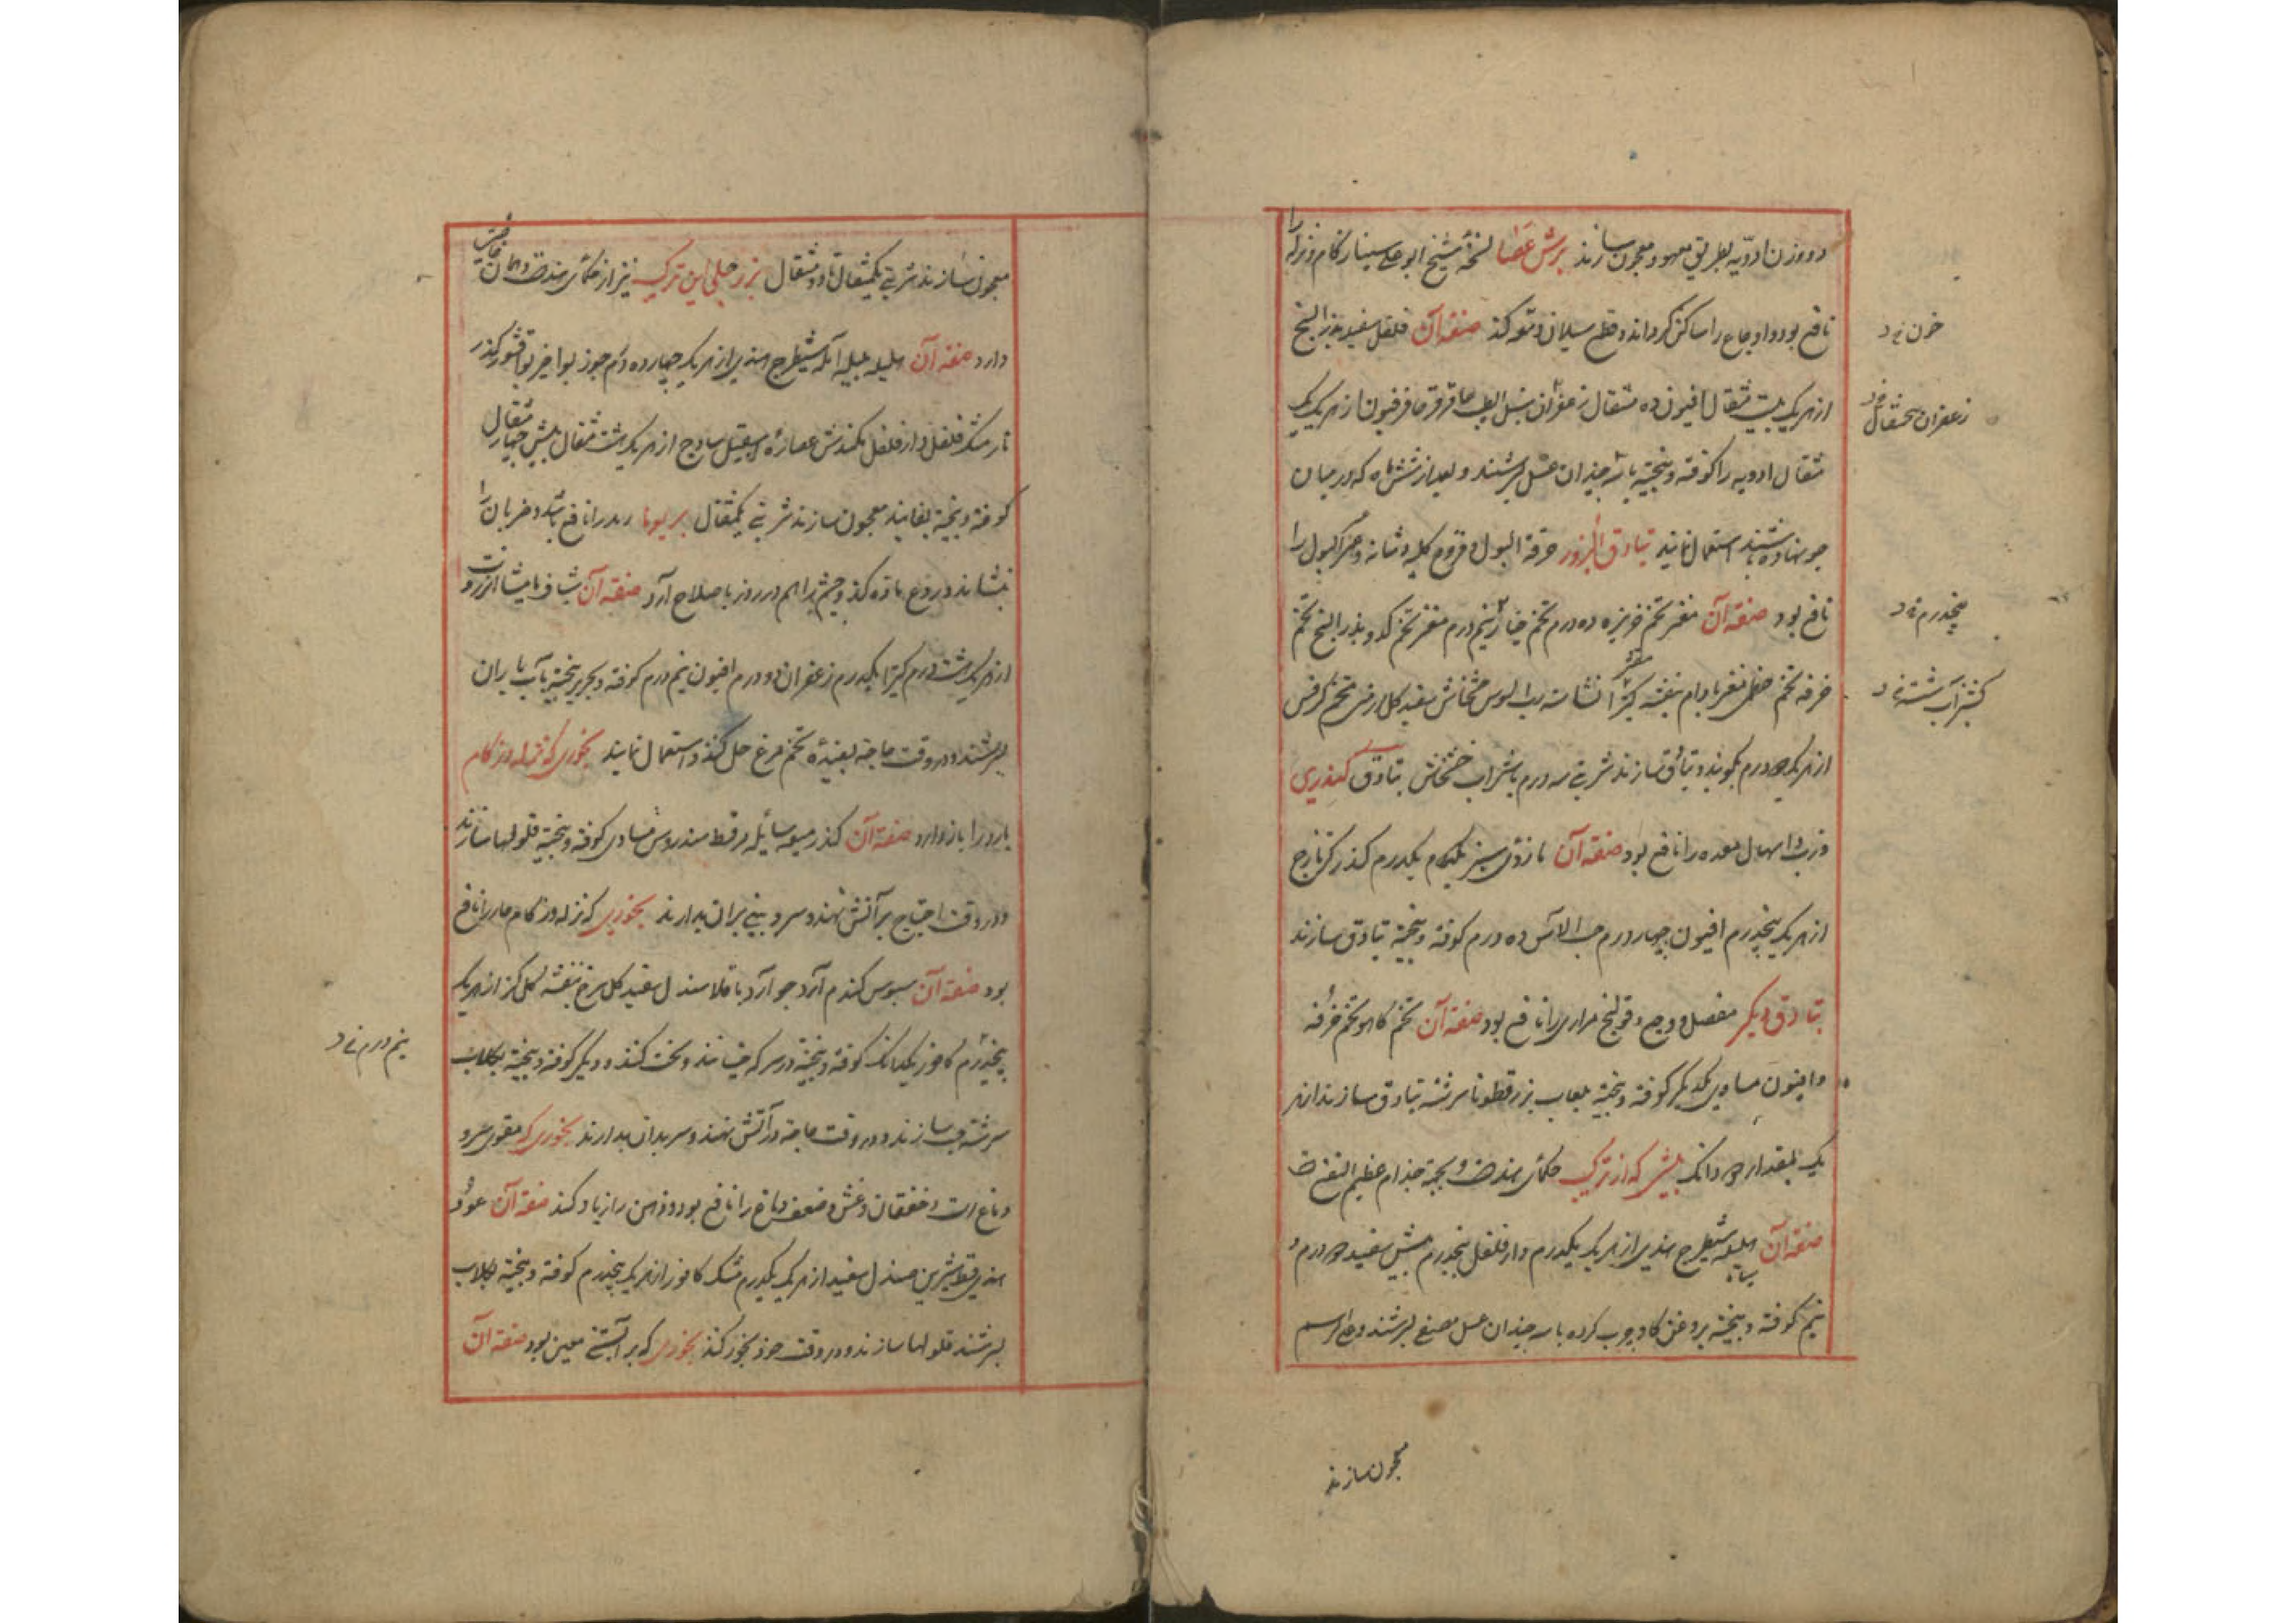 دو وزن ادویه بطریق معهود معجون سازند برش عطا نسخه شیخ ابو علی سینا زکام و نزله را
نافع بود و اوجاع را ساکن کرداند و قطع سیلان کند صنعة آن فلفل سفید بذر البنج
از هر یک بیست مثقال افیون ده مثقال زعفران سنبل الطیب عاقرقرحا فرفیون از هر یک یک
مثقال ادویه را کوفته و بیخته با سه چندان عسل بسرشند و بعد از شش ماه که در میان
جو نهاده باشند استعمال نمایند بنادق البزور حرقة البول و قروح کلیه و مثانه و عسر البول را
نافع بود صنعة آن مغز تخم خربزه ده درم تخم خیار پنج درم مغز تخم کدو بذر البنج تخم
خرفه تخم خطمی مغز بادام بنفشه کتیرا نشاسته رب السوس خشخاش سفید کل ارمنی تخم کرفس
از هر یک دو درم بکوبند و بنادق سازند شربتی سه درم با شراب خشخاش بنادق کندری
ذرب و اسهال معده را نافع بود صنعة آن مازوی سبز یکدرم کندر کزمازج
از هر یک پنجدرم افیون چهار درم حب الاس ده درم کوفته و بیخته بنادق سازند
بنادق دیکر مفصل و وجع و قولنج مراری را نافع بود صنعة آن تخم کاهو تخم خرفه
و افیون مساوی یکدیکر کوفته و بیخته بلعاب بزر قطونا سرشته بنادق سازند از هر
یک بمقدار دو دانک بیش که از ترکیب حکمای هندست و بجهة جذام عظیم النفع است
صنعة آن هلیله سیاه شیطرج هندی از هر یک یکدرم دار فلفل پنجدرم بیش سفید دو درم و
نیم کوفته و بیخته بروغن کاو چرب کرده با سه چندان عسل مصفی بسرشند و علی الرسم
معجون سازند
زعفران پنج مثقال
پنجدرم
معجون سازند شربتی یکمثقال تا دو مثقال بزرجلی این ترکیب نیز از حکمای هندست و همان خاصیت
دارد صنعة آن هلیله بلیله آمله شیطرج هندی از هر یک چهارده درم جوز بوا خیر بوا قشور کندر
نارمشک فلفل دار فلفل کندش عصاره اسقیل سادج از هر یک هشت مثقال بیش چهار مثقال
کوفته و بیخته بفانید معجون سازند شربتی یکمثقال برپونا رمد را نافع باشد و ضربان را
بنشاند و ردع ماده کند و چشم را هم در روز باصلاح آرد صنعة آن شیاف مامیثا انزروت
از هر یک هشت درم کتیرا یکدرم زعفران دو درم افیون نیم درم کوفته و بحریر بیخته بآب باران
بسرشند و در وقت حاجة بسفیده تخم مرغ حل کنند و استعمال نمایند بخوری که نزله و زکام
بارد را باز دارد صنعة آن کندر میعه سایله مر قسط سندروس مساوی کوفته و بیخته قلولها سازند
و در وقت احتیاج بر آتش نهند و سر و بینی بران بدارند بخوری که نزله و زکام حار را نافع
بود صنعة آن سبوس کندم آرد جو آرد باقلا صندل سفید کل سرخ بنفشه کل کز از هر یک
پنجدرم کافور یکدانک کوفته و بیخته در سرکه خیسانند و خشک کنند و دیکر کوفته و بیخته بکلاب
سرشته حب سازند و در وقت حاجة در آتش نهند و سر بدان بدارند بخوری که مقوی سر و
دماغ است و خفقان و غشی و ضعف دماغ را نافع بود و ذهن را زیاد کند صنعة آن عود
هندی قسط شیرین صندل سفید از هر یک یکدرم مشک کافور از هر یک پنجدرم کوفته و بیخته بکلاب
بسرشند قلولها سازند و در وقت خود بخور کنند بخوری که بر آبستنی معین بود صنعة آن
نیم درم